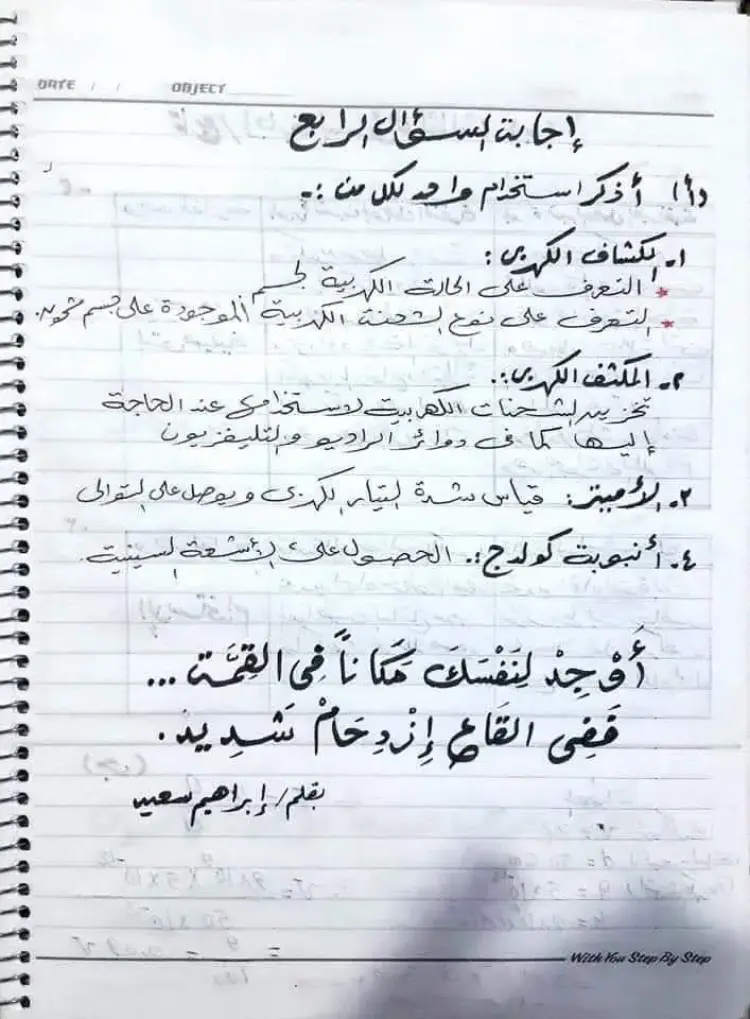 DATE / / OBJECT
إجابة السؤال الرابع
(أ) أذكر استخدام واحد لكل من :-
١- الكشاف الكهربي :
* التعرف على الحالة الكهربية لجسم
* التعرف على نوع الشحنة الكهربية الموجودة على جسم مشحون.
٢- المكثف الكهربي :.
تخزين الشحنات الكهربية لاستخدامها عند الحاجة
إليها كما في دوائر الراديو والتليفزيون
٣- الأميتر : قياس شدة التيار الكهربي ويوصل على التوالي
٤- أنبوبة كولدج :. الحصول على الأشعة السينية.
أَوْجِدْ لِنَفْسَكَ مَكَاناً فِي القِمَّة ...
فَفِي القَاعِ إِزْدِحَامْ شَدِيد.
بقلم / إبراهيم سعيد
With You Step By Step